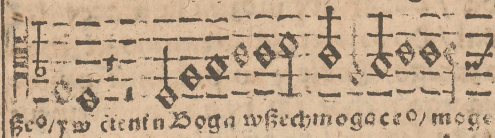 ßeº/yw ctenin Boga wßechmogaceº/ moge